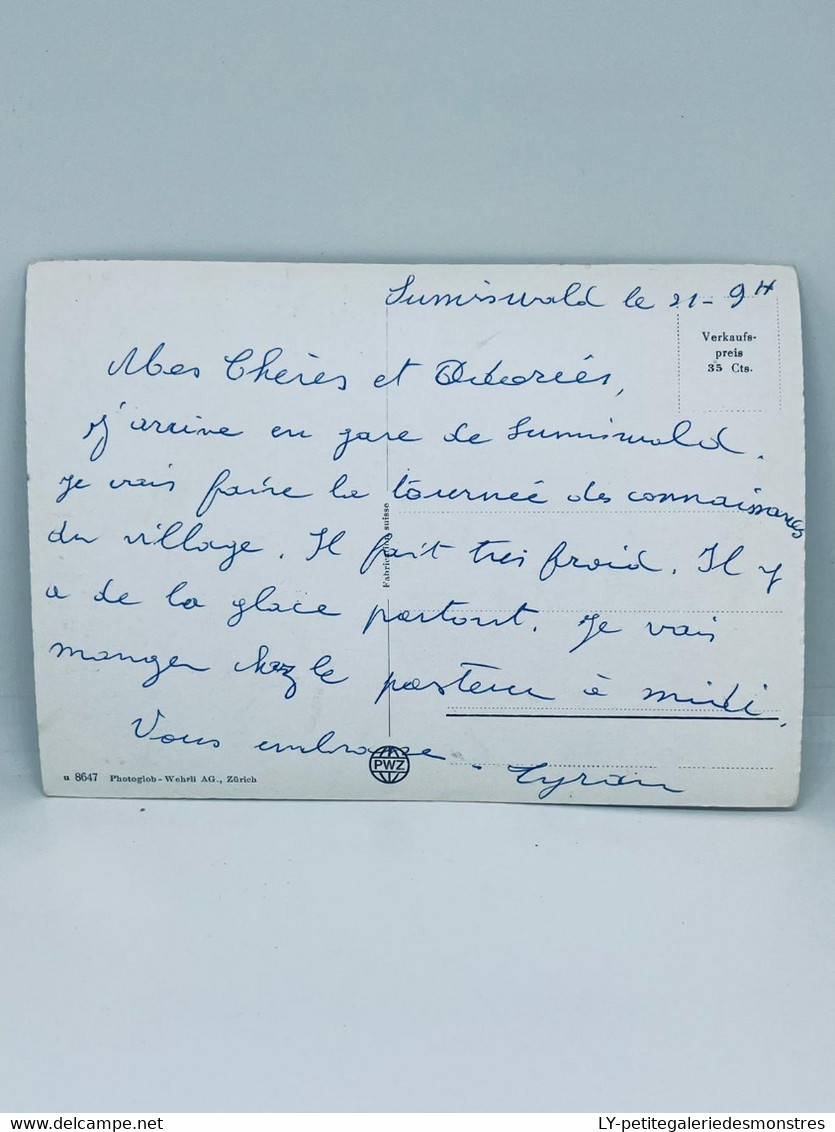 Sumiswald le 21- 9H
Verkaufs-
preis
35 Cts.
Mes Chères et Adorées,
J'arrive en gare de Sumiswald.
Je vais faire la tournée des connaissances
du village. Il fait très froid. Il y
a de la glace partout. Je vais
manger chez le pasteur à midi.
Vous embrasse.
Fabrication suisse
PWZ
u 8647 Photoglob-Wehrli AG., Zürich
LY-petitegaleriedesmonstres